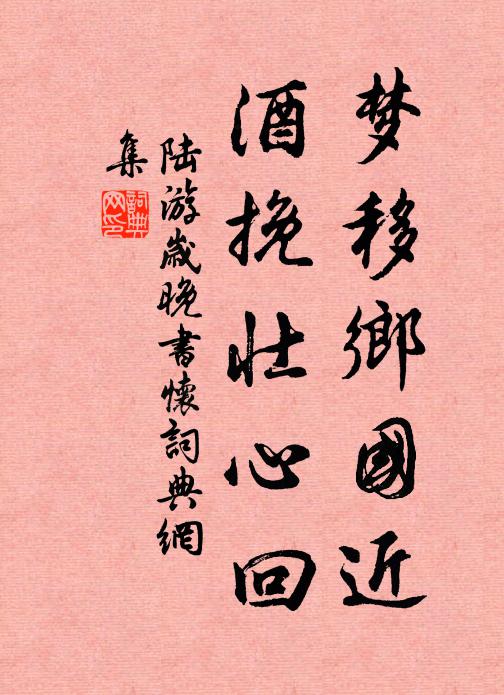 梦移鄉國近
酒挽壮心回
陆游歲晚書懷詞典網
集
詞典
网印